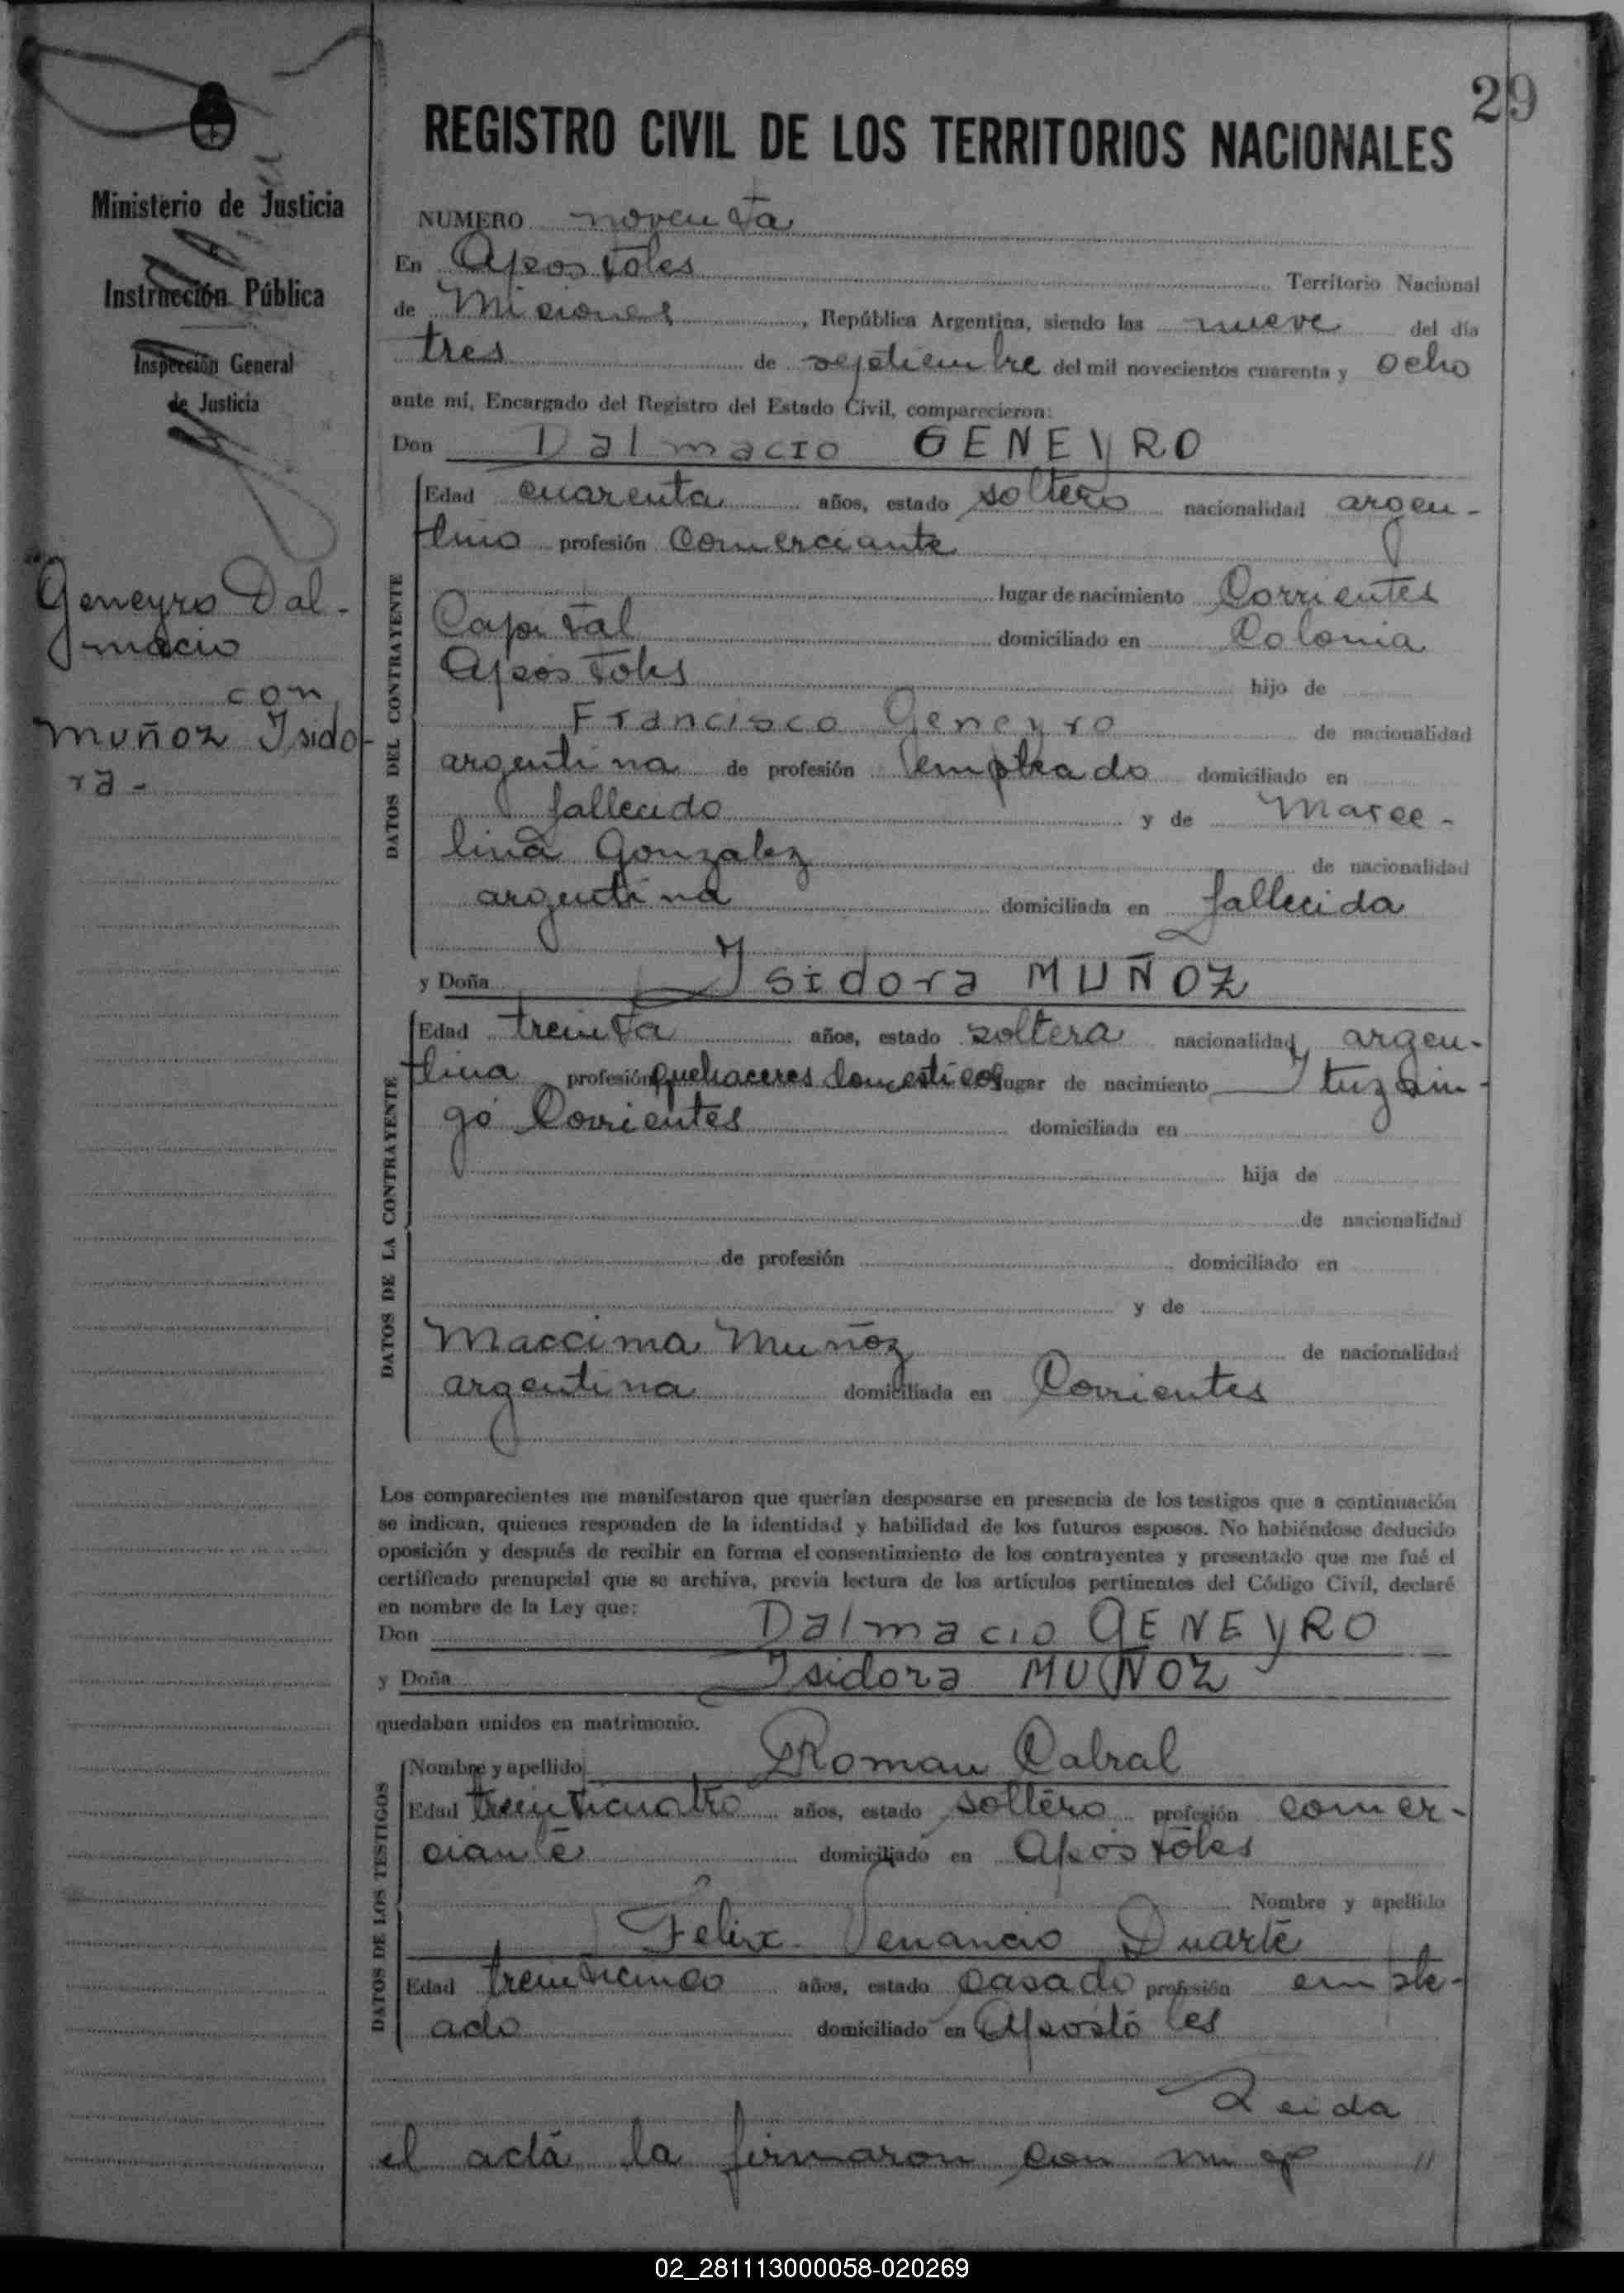 29
REGISTRO CIVIL DE LOS TERRITORIOS NACIONALES
Ministerio de Justicia
Instrucción Pública
Inspección General
de Justicia
Geneyro Dal-
macio
con
Muñoz Isido-
ra-
NUMERO noventa
En Apostoles Territorio Nacional
de Misiones, República Argentina, siendo las nueve del día
tres de septiembre del mil novecientos cuarenta y ocho
ante mí, Encargado del Registro del Estado Civil, comparecieron:
Don Dalmacio GENEYRO
DATOS DEL CONTRAYENTE
Edad cuarenta años, estado soltero nacionalidad argen-
tino profesión Comerciante
lugar de nacimiento Corrientes
Capital domiciliado en Colonia
Apóstoles hijo de
Francisco Geneyro de nacionalidad
argentina de profesión empleado domiciliado en
fallecido y de Marce-
lina Gonzalez de nacionalidad
argentina domiciliada en fallecida
y Doña Isidora MUÑOZ
DATOS DE LA CONTRAYENTE
Edad treinta años, estado soltera nacionalidad argen-
tina profesión quehaceres domesticos lugar de nacimiento Ituzain-
gó Corrientes domiciliada en
hija de
de nacionalidad
de profesión domiciliado en
y de
Maccima Muñoz de nacionalidad
argentina domiciliada en Corrientes
Los comparecientes me manifestaron que querían desposarse en presencia de los testigos que a continuación
se indican, quienes responden de la identidad y habilidad de los futuros esposos. No habiéndose deducido
oposición y después de recibir en forma el consentimiento de los contrayentes y presentado que me fué el
certificado prenupcial que se archiva, previa lectura de los artículos pertinentes del Código Civil, declaré
en nombre de la Ley que:
Don Dalmacio GENEYRO
y Doña Isidora MUÑOZ
quedaban unidos en matrimonio.
DATOS DE LOS TESTIGOS
Nombre y apellido Roman Cabral
Edad treinticuatro años, estado soltero profesión comer-
ciante domiciliado en Apóstoles
Nombre y apellido
Felix Venancio Duarte
Edad treinticinco años, estado casado profesión emple-
ado domiciliado en Apostóles
Leida
el acta la firmaron con mi go "
02_281113000058-020269